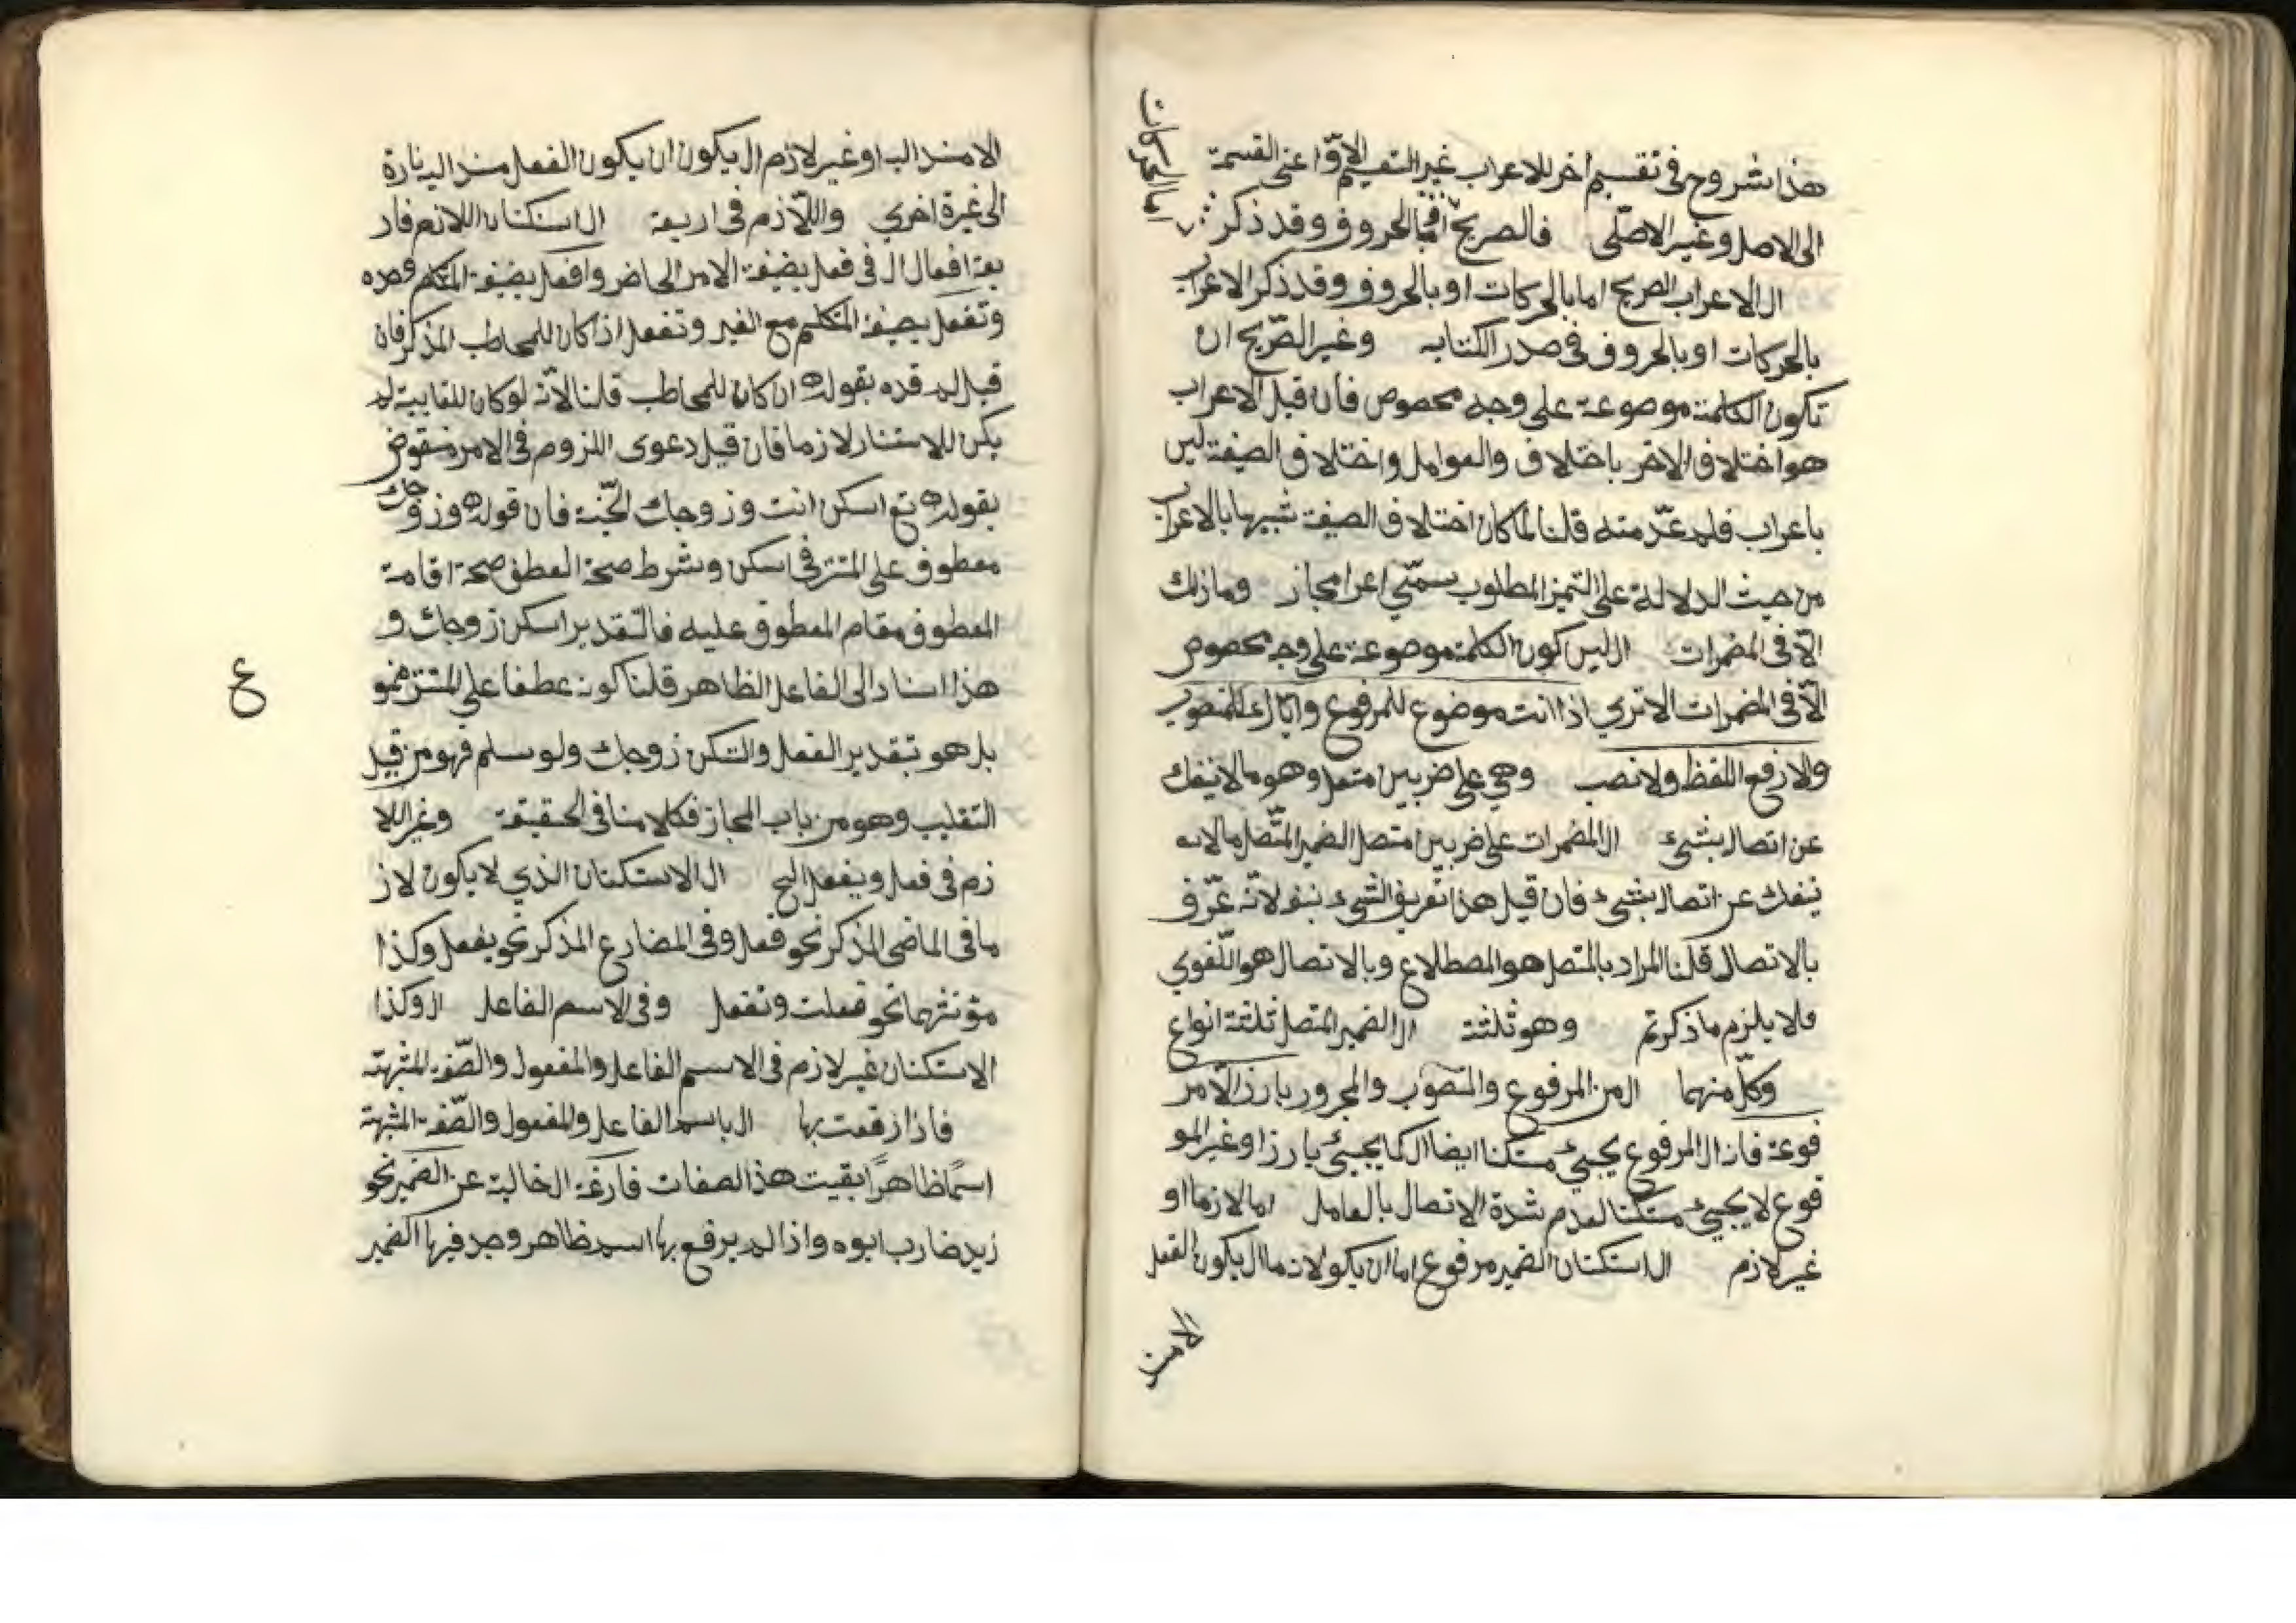 هذا شروح فى تقسيم اخر للاعراب غير التقسيم الاوّل اعنى القسمة
الى الاصل وغير الاصلّى فالصريح اما بالحروف وقد ذكر
اما بالحركات
ال الاعراب الصريح اما بالحركات او بالحروف وقد ذكر الاعراب
بالحركات او بالحروف فى صدر الكتاب وغير الصّريح ان
تكون الكلمة موضوعة على وجه مخصوص فان قيل الاعراب
هو اختلاف الاخر باختلاف والعوامل واختلاف الصيغة ليس
باعراب فلم عدّ منه قلنا لما كان اختلاف الصيغة شبيها بالاعراب
من حيث الدلالة على التميز المطلوب سمّي اعرا مجاز وما ذلك
الّا فى المضمرات ال ليس كون الكلمة موضوعة على وجه مخصوص
الّا فى المضمرات الا تري اذا انت موضوع للمرفوع واياك للمنصوب
ولا رفع اللفظ ولا نصب وهي على ضربين متصل وهو ما لا ينفك
عن اتصال بشيء ال المضمرات على ضربين متصل الضمير المتّصل ما لا
ينفك عن اتصال بشيء فان قيل هذا تعريف الشيء بنفو لانه عرّف
بالاتصال قلنا المراد بالمتصل هو المصطلاع وبالاتصال هو اللّغوي
فلا يلزم ما ذكرتم وهو ثلثة ال الضمير المتصل ثلثة انواع
وكلّ منهما ال من المرفوع والمنصوب والمجرور بارز الّا مر
فوعة فان ال المرفوع يجيئ مستكنا ايضا ال كما يجيئ بارزا وغير المر
فوع لا يجيئ مستكنا لعدم شدة الاتصال بالعامل اما لازما او
غير لازم ال استكنان الضمير مرفوع اما ان يكو لازما ال يكون الفعل
الا مسند اليه او غير لازم ال يكون ان يكون الفعل مسند اليه تارة
الى غيرة اخري واللّازم فى اربعة ال استكنان اللازم فار
بعة افعال ال فى فعل بصيغة الامر الحاضر وافعل بصيغة المتكلم وحده
وتفعل بصيغة المتكلم مع الغير وتفعل اذا كان للمخاطب المذكر فان
قيل لم قده بقوله ان كان للمخاطب قلنا لانّه لو كان للغايبة لم
يكن للاستتار لازما فان قيل دعوى اللزوم فى الامر منقوض
بقوله تع اسكن انت وزوجك الجّنة فان قوله وزوجك
معطوف على المستتر فى اسكن وشرط صحة العطف صحة اقامة
المعطوف مقام المعطوف عليه فالتقدير اسكن زوجك و
هذا اسناد الى الفاعل الظاهر قلنا كونه عطفا على المستتر ممنو
ع
بل هو بتقدير الفعل والتسكن زوجك ولو سلم فهو من قبيل
التغليب وهو من باب المجاز فكلامنا فى الحقيقة وغير اللا
زم فى فعل ويفعل الخ ال الاستكنان الذي لا يكون لاز
ما فى الماضى المذكر نحو فعل وفى المضارع المذكر نحو يفعل وكذا
مؤنثهما نحو فعلت وتفعل وفى الاسم الفاعل ال وكذا
الاستكنان غير لازم فى الاسم الفاعل والمفعول والصّفة المشبهة
فاذا رفعت بها ال باسم الفاعل والمفعول والصّفة المشبهة
اسمًا ظاهرًا بقيت هذ الصفات فارغة الخالية عن الضمير نحو
زيد ضارب ابوه واذا لم يرفع بها اسم ظاهر وجد فيها الضمير